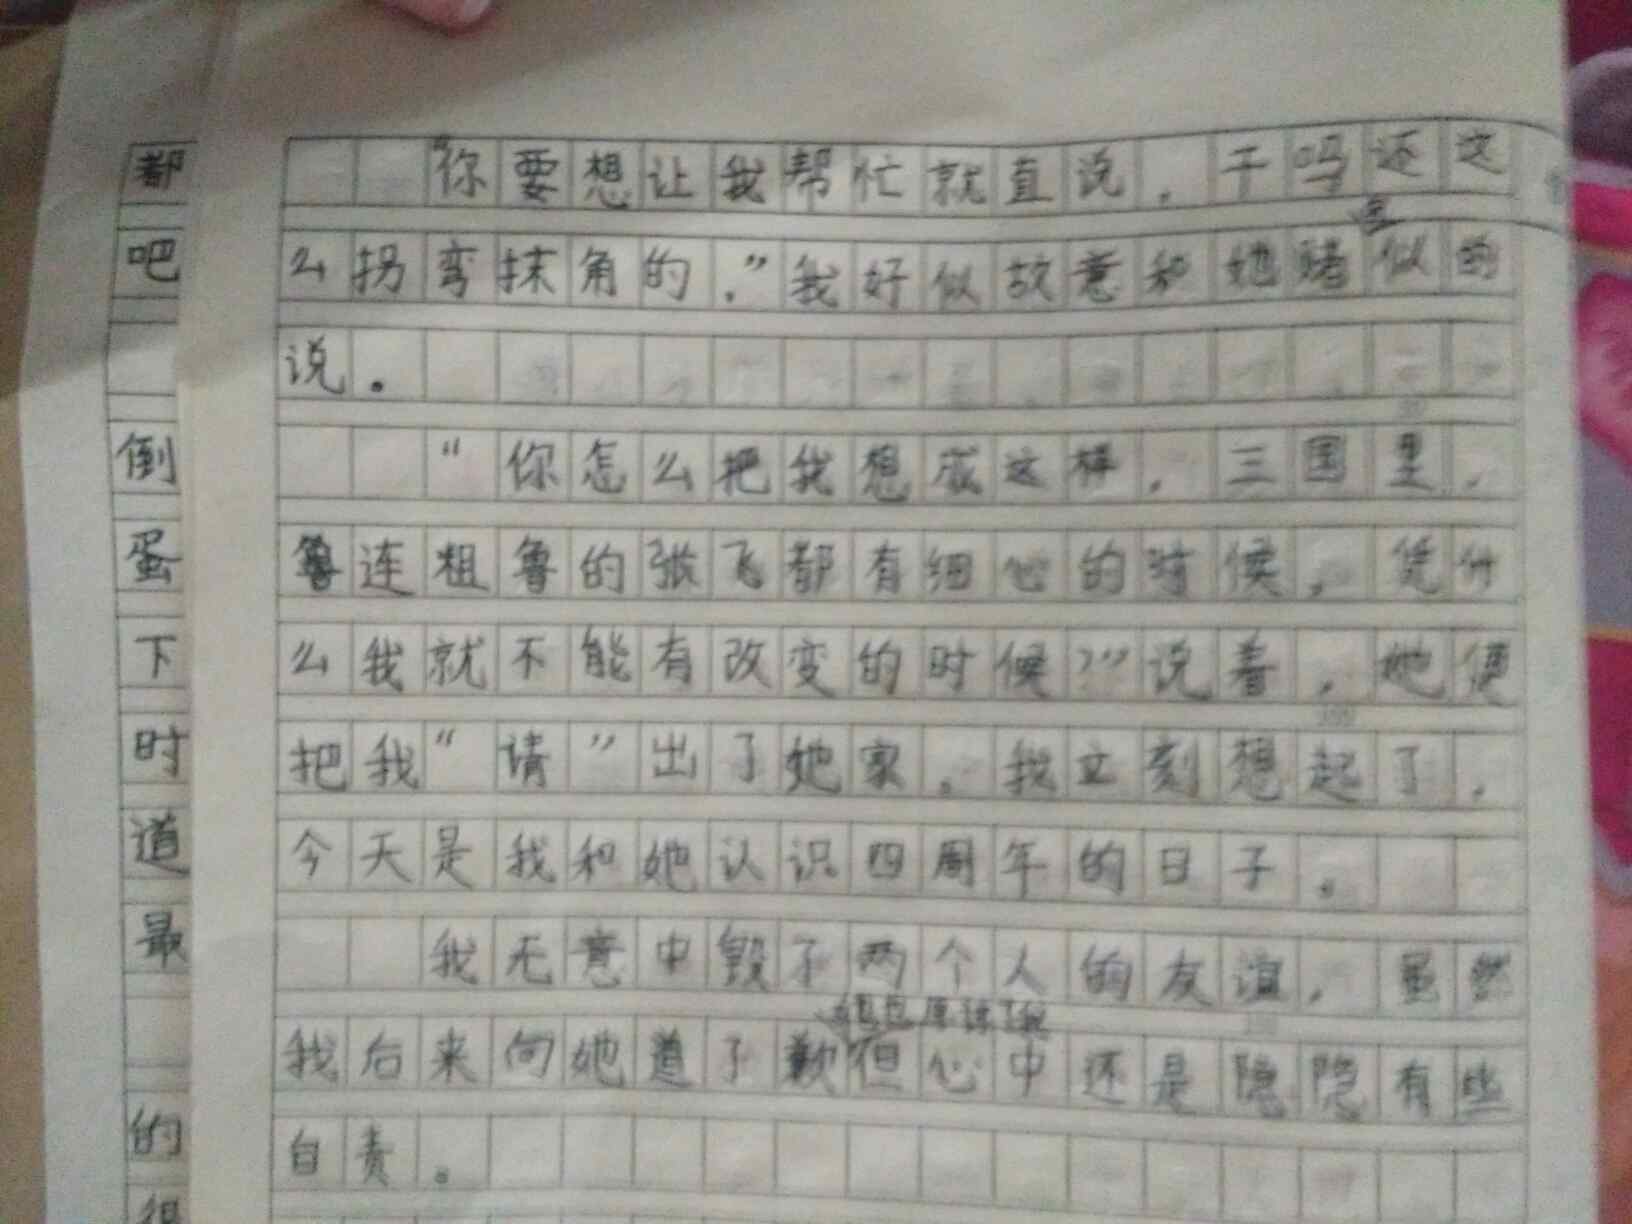 “你要想让我帮忙就直说，干吗还这
么拐弯抹角的，”我好似故意和她赌气似的
说。
“你怎么把我想成这样，三国里，
连粗鲁的张飞都有细心的时候，凭什
么我就不能有改变的时候？”说着，她便
把我“请”出了她家。我立刻想起了，
今天是我和她认识四周年的日子。
我无意中毁了两个人的友谊，虽然
我后来向她道了歉，她也原谅了我但心中还是隐隐有些
自责。
都
吧
倒
蛋
下
时
道
最
的